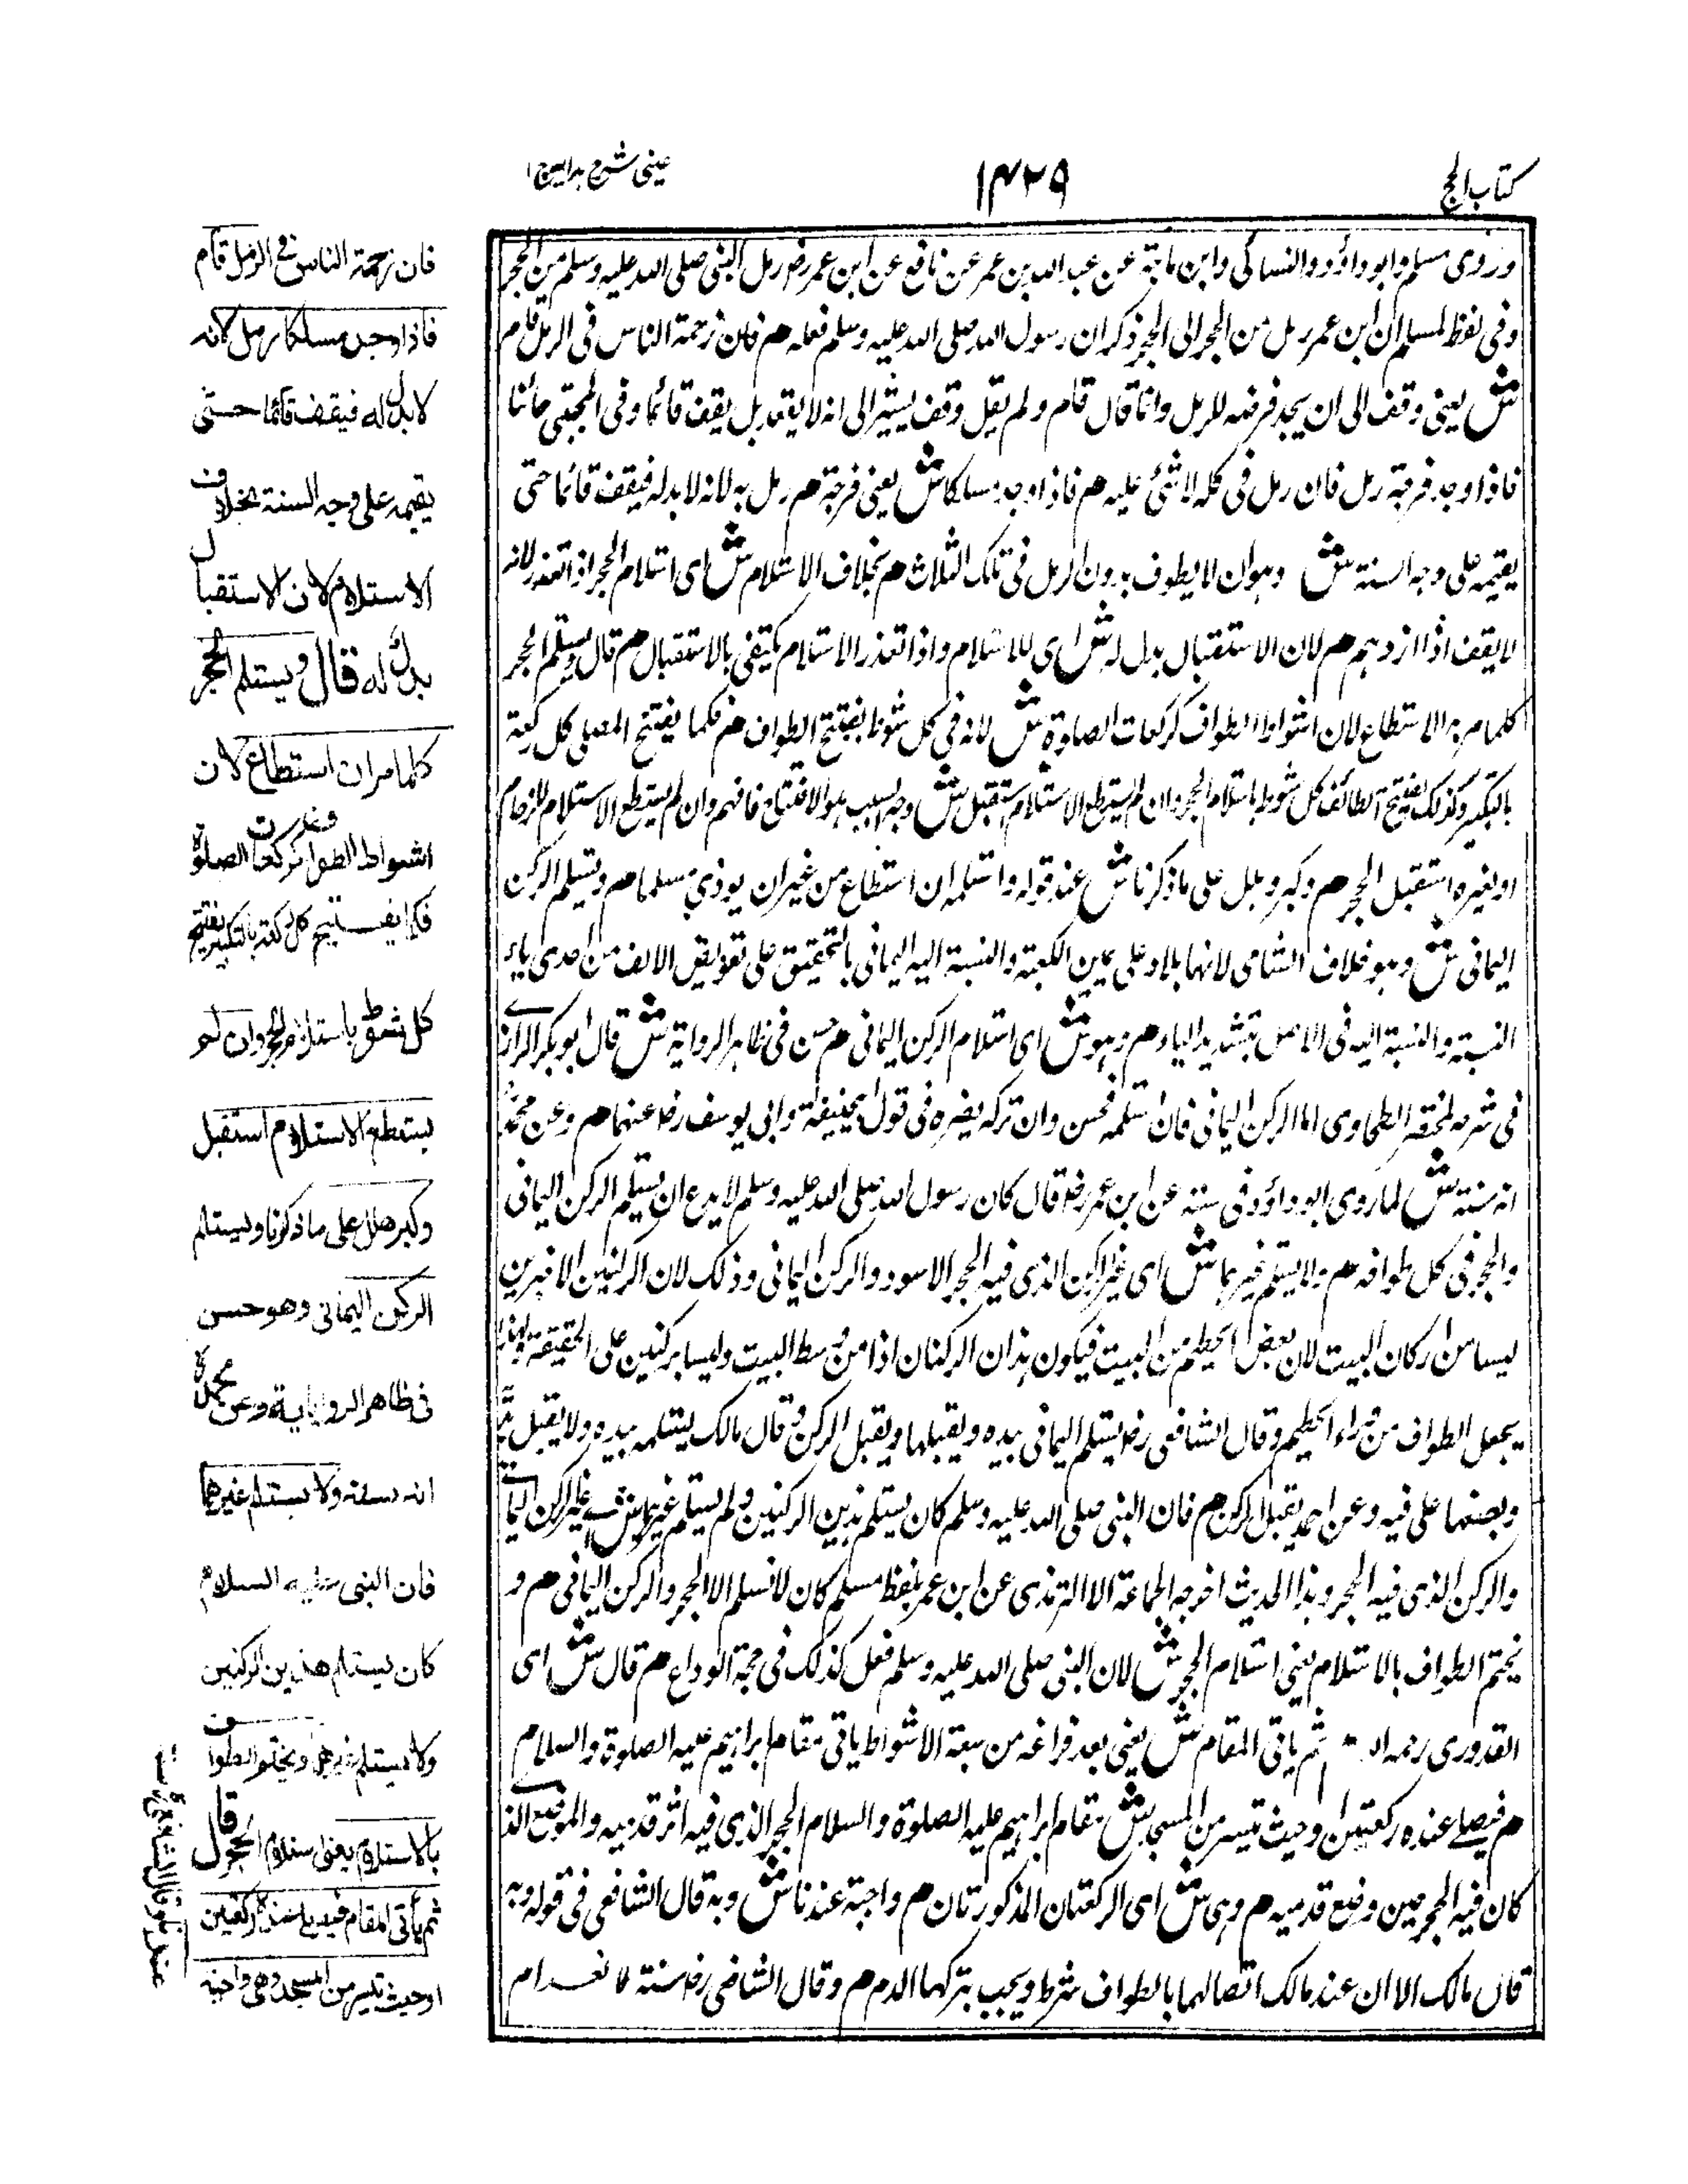 كتاب الحج
١٤٢٩
عينى شرح هداية ج ١
وروى مسلم وابو داؤد والنسائى وابن ماجة عن عبد الله بن عمر عن نافع عن ابن عمر رض رمل النبى صلى الله عليه وسلم من الحجر
وفى لفظ لمسلم ان ابن عمر رمل من الحجر الى الحجر وذكر ان رسول الله صلى الله عليه وسلم فعله هم فان زحمة الناس فى الرمل قام هم
ش يعنى وقف الى ان يجد فرضه للرمل وانما قال قام ولم يقل وقف يشير الى انه لا يقعد بل يقف قائما وفى المجتبى
فاذا وجد فرجة رمل فان رمل فى كله لا شئ عليه هم فاذا وجد مسلكا ش يعنى فرجة هم رمل به لانه لا بد له فيقف قائما حتى
يقيمه على وجه السنة ش وهو ان لا يطوف بدون الرمل فى تلك الثلاث هم بخلاف الاستلام ش اى استلام الحجر اذا تعذر لانه
لا يقف اذا ازدحم هم لان الاستقبال بدل له ش اى للاستلام واذا تعذر الاستلام يكتفى بالاستقبال هم قال ويستلم الحجر
كلما مر به ان استطاع لان اشواط الطواف كركعات الصلوة ش لانه فى كل شوط يفتتح الطواف هم فكما يفتتح المصلى كل ركعة
بالتكبير وكذلك يفتتح الطائف كل شوط باستلام الحجر وان لم يستطع الاستلام استقبل ش وجه السبب هو الافتتاح فافهم وان لم يستطع الاستلام للزحام
او لغيره استقبل الحجر هم وكبر وهلل على ما ذكرنا ش عند قوله واستلمه ان استطاع من غير ان يوذى مسلما هم ويستلم الركن
اليمانى ش وهو خلاف الشامى لانها بلاد على يمين الكعبة والنسبة اليه اليمانى بالتحقيق على تعويض الالف من احدى ياء
النسبة والنسبة اليه فى الاصل بتشديد الياء هم وهو ش اى استلام الركن اليمانى هم حسن فى ظاهر الرواية ش قال ابو بكر الرازى
فى شرحه لمختصر الطحاوى اما الركن اليمانى فان استلمه فحسن وان تركه يضره فى قول ابى حنيفة وابى يوسف رض عنهما هم وعن محمد
انه سنة ش لما روى ابو داؤد فى سننه عن ابن عمر رض قال كان رسول الله صلى الله عليه وسلم لا يدع ان يستلم الركن اليمانى
والحجر فى كل طوافه هم ولا يستلم غيرهما ش اى غير الركن الذى فيه الحجر الاسود والركن اليمانى وذلك لان الركنين الاخيرين
ليسا من اركان البيت لان بعض الحطيم من البيت فيكون هذان الركنان اذا من وسط البيت وليسا بركنين على الحقيقة ولهذا
يجعل الطواف من وراء الحطيم وقال الشافعى رض يستلم اليمانى بيده ويقبلها ويقبل الركن وقال مالك يستلمه بيده ولا يقبل
ويضعها على فيه وعن احمد يقبل الركن هم فان النبى صلى الله عليه وسلم كان يستلم هذين الركنين ولم يستلم غيرهما ش غير الركن اليمانى
والركن الذى فيه الحجر وهذا الحديث اخرجه الجماعة الا الترمذى عن ابن عمر بلفظ مسلم كان لا يستلم الا الحجر والركن اليمانى هم و
يختم الطواف بالاستلام يعنى استلام الحجر ش لان النبى صلى الله عليه وسلم فعل كذلك فى حجة الوداع هم قال ش اى
القدورى رحمه الله ثم ياتى المقام ش يعنى بعد فراغه من سبعة الاشواط ياتى مقام ابراهيم عليه الصلوة والسلام
هم فيصلى عنده ركعتين او حيث تيسر من المسجد ش مقام ابراهيم عليه الصلوة والسلام الحجر الذى فيه اثر قدميه والموضع الذى
كان فيه الحجر حين وضع قدميه هم وهى ش اى الركعتان المذكورتان هم واجبة عندنا ش وبه قال الشافعى فى قوله وبه
قال مالك الا ان عند مالك اتصالهما بالطواف شرط ويجب بتركها الدم هم وقال الشافعى رض سنة لانعدام
فان زحمة الناس فى الرمل قام
فاذا وجد مسلكا رمل لانه
لا بد له فيقف قائما حتى
يقيمه على وجه السنة بخلاف
الاستلام لان الاستقبال
بدل له قال ويستلم الحجر
كلما مر ان استطاع لان
اشواط الطواف كركعات الصلوة
فكما يفتتح كل ركعة بالتكبير يفتتح
كل شوط باستلام الحجر وان لم
يستطع الاستلام استقبل
وكبر وهلل على ما ذكرنا ويستلم
الركن اليمانى وهو حسن
فى ظاهر الرواية وعن محمد
انه سنة ولا يستلم غيرهما
فان النبى عليه السلام
كان يستلم هذين الركنين
ولا يستلم غيرهما ويختم الطواف
بالاستلام يعنى استلام الحجر قال
ثم يأتى المقام فيصلى عنده ركعتين
او حيث تيسر من المسجد وهى واجبة
عندنا وقال الشافعى